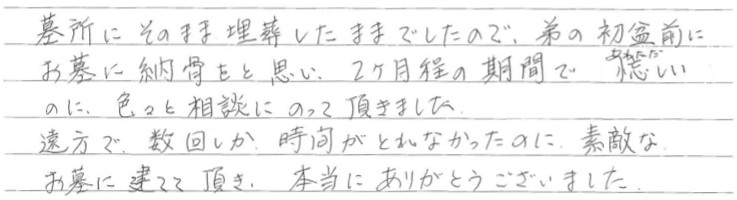 墓所にそのまま埋葬したままでしたので、弟の初盆前に
お墓に納骨をと思い、2ケ月程の期間で慌しい
のに、色々と相談にのって頂きました。
遠方で、数回しか、時間がとれなかったのに、素敵な
お墓に建てて頂き、本当にありがとうございました。